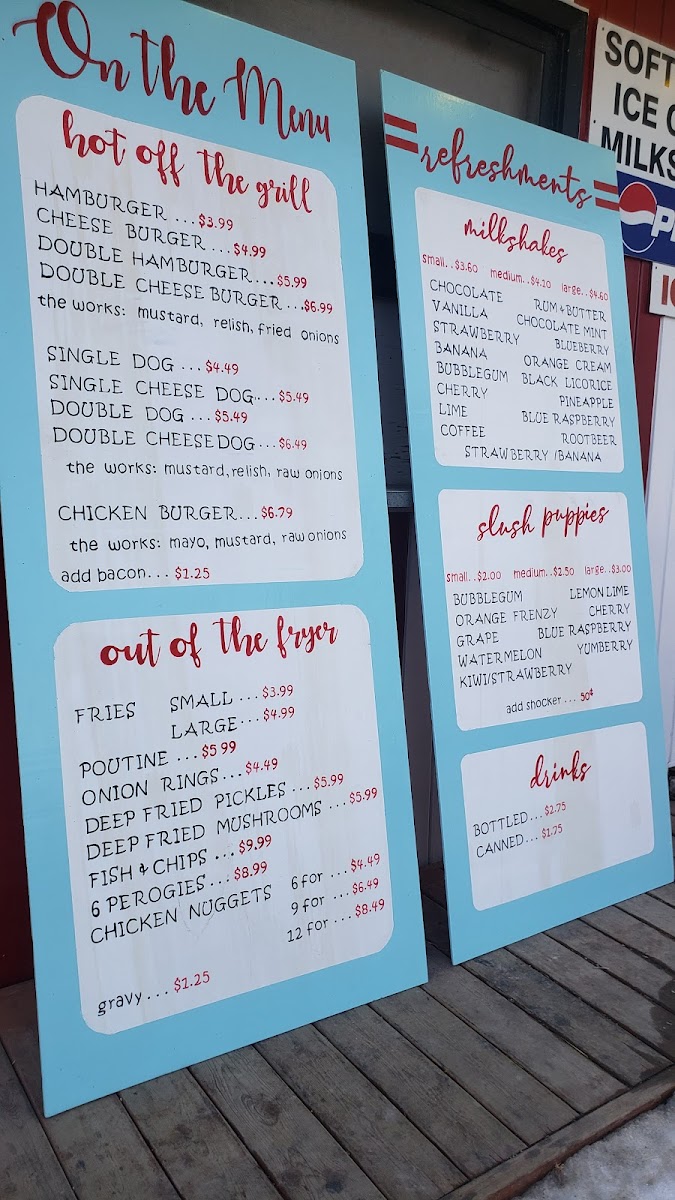 On the Menu
hot off the grill
HAMBURGER ... $3.99
CHEESE BURGER ... $4.99
DOUBLE HAMBURGER.... $5.99
DOUBLE CHEESE BURGER ... $6.99
the works: mustard, relish, fried onions
SINGLE DOG ... $4.49
SINGLE CHEESE DOG.... $5.49
DOUBLE DOG ... $5.49
DOUBLE CHEESE DOG... $6.49
the works: mustard, relish, raw onions
CHICKEN BURGER... $6.79
the works: mayo, mustard, raw onions
add bacon... $1.25
out of the fryer
FRIES SMALL ... $3.99
LARGE... $4.99
POUTINE ... $5.99
ONION RINGS... $4.49
DEEP FRIED PICKLES ... $5.99
DEEP FRIED MUSHROOMS ... $5.99
FISH & CHIPS ... $9.99
6 PEROGIES... $8.99
CHICKEN NUGGETS 6 for ... $4.49
9 for ... $6.49
12 for ... $8.49
gravy... $1.25
refreshments
milkshakes
small..$3.60 medium..$4.10 large..$4.60
CHOCOLATE RUM & BUTTER
VANILLA CHOCOLATE MINT
STRAWBERRY BLUEBERRY
BANANA ORANGE CREAM
BUBBLEGUM BLACK LICORICE
CHERRY PINEAPPLE
LIME BLUE RASPBERRY
COFFEE ROOTBEER
STRAWBERRY /BANANA
slush puppies
small..$2.00 medium..$2.50 large..$3.00
BUBBLEGUM LEMON LIME
ORANGE FRENZY CHERRY
GRAPE BLUE RASPBERRY
WATERMELON YUMBERRY
KIWI/STRAWBERRY
add shocker ... 50¢
drinks
BOTTLED... $2.75
CANNED... $1.75
SOFT
ICE C
MILKS